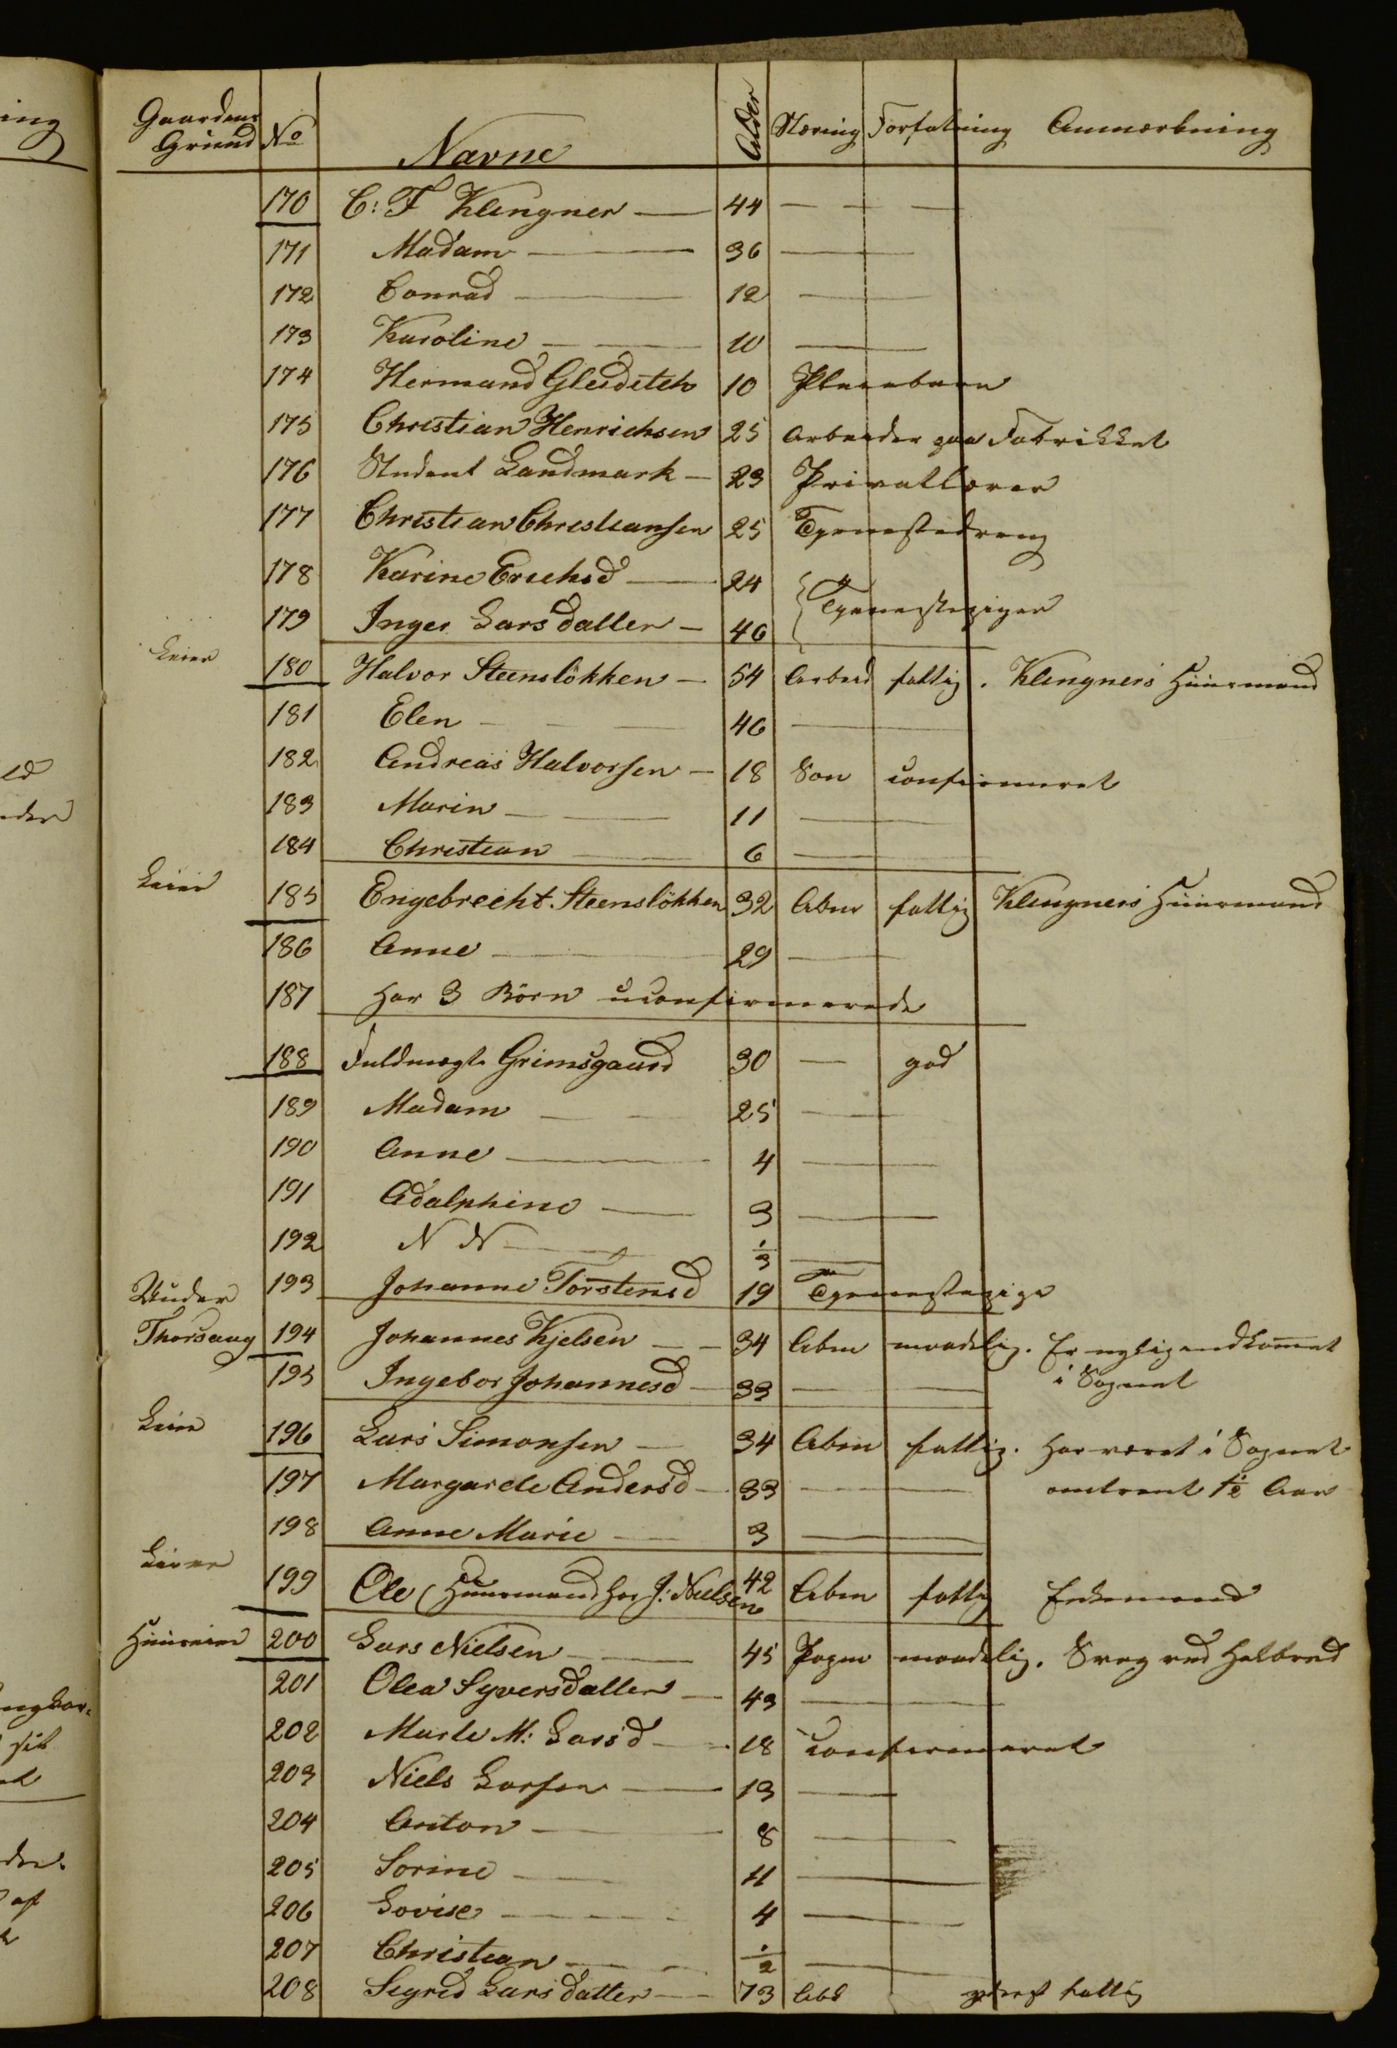 Gaardens Grund No Navne Alder Næring Forfatning Anmærkning
170 C: F Klingner 44
171 Madam 36
172 Conrad 12
173 Karoline 10
174 Hermand Gleditch 10 Pleiebarn
175 Christian Henrichsen 25 Arbeider paa Fabrikket
176 Student Landmark 23 Privatlærer
177 Christian Christiansen 25 Tjenestedreng
178 Karine Erichsd 24
179 Inger Larsdatter 46 Tjenestepiger
Leier 180 Halvor Steenslökken 54 Arbeid fattig. Klingners Huusmand
181 Elen 46
182 Andreas Halvorsen 18 Søn uconfirmeret
183 Marin 11
184 Christian 6
Leier 185 Engebrecht Steenslökken 32 Abm fattig Klingners Huusmand
186 Anne 29
187 Har 3 Börn uconfirmerede
188 Fuldmægt. Grimsgaard 30 god
189 Madam 25
190 Anne 4
191 Adalphine 3
192 N N 1/3
Under 193 Johanne Torstensd 19 Tjenestepige
Thorsaug 194 Johannes Kjelsen 34 Abm maadelig. Er nyligen ankommet
195 Ingebor Johannesd 33 i Sognet
Leier 196 Lars Simonsen 34 Abm fattig. Har været i Sognet
197 Margarete Andersd 33 omtrent 1½ Aar
198 Anne Marie 3
Leier 199 Ole (Huusmand hos J: Nielsen 42 Abm fattig Enkemand
Huuseier 200 Lars Nielsen 45 maadelig. Svag ved Helbred
201 Olea Syversdatter 43
202 Marte M: Larsd 18 uconfirmeret
203 Niels Larsen 13
204 Anton 8
205 Sorine 11
206 Lovise 4
207 Christian 1/2
208 Sigrid Larsdatter 73 fattig